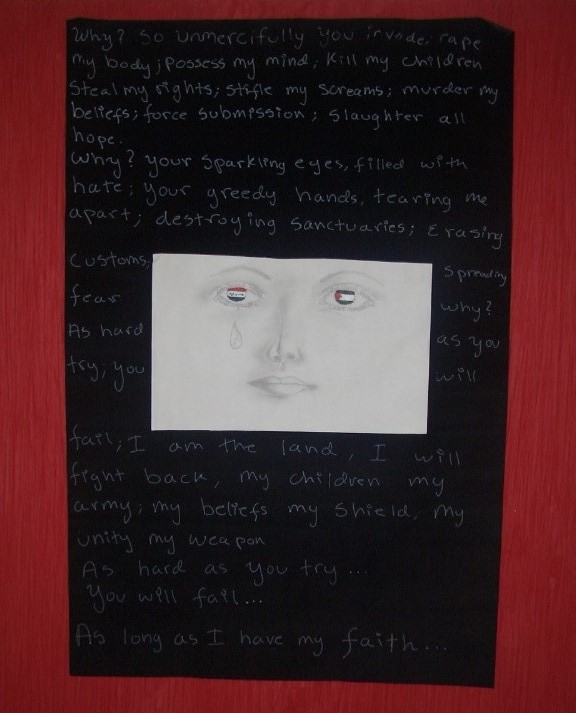 Why? So unmercifully you invade; rape
my body; possess my mind; kill my children
Steal my rights; stifle my screams; murder my
beliefs; force submission; slaughter all
hope.
Why? your sparkling eyes, filled with
hate; your greedy hands, tearing me
apart; destroying sanctuaries; Erasing
customs; spreading
fear why?
As hard as you
try, you will
fail; I am the land, I will
fight back, my children my
army; my beliefs my shield, my
unity my weapon
As hard as you try...
You will fail...
As long as I have my faith...